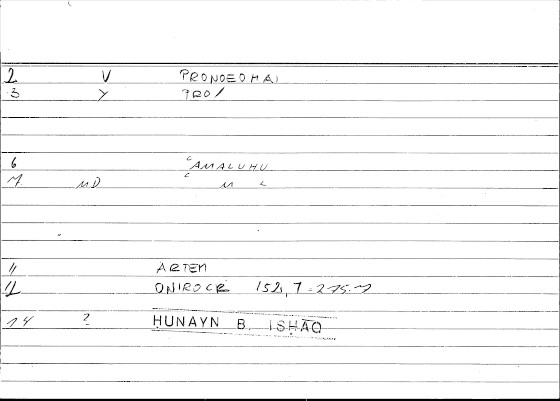 2 V PRONOEOMAI
3 Y PRO/
6 ʿAMALUHU
7 MD ʿ M L
11 ARTEM
12 ONIROCR 152, 7 = 275.7
14 ? HUNAYN B. ISHAQ